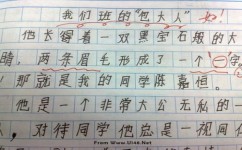 我们班的"包大人"
他长得着一双黑宝石般的大
睛，两条眉毛形成了一个"一"字
！那就是我的同学陈嘉桓。
他是一个非常大公无私的一
，对待同学他总是一视同仁
From Www.Ut46.Net